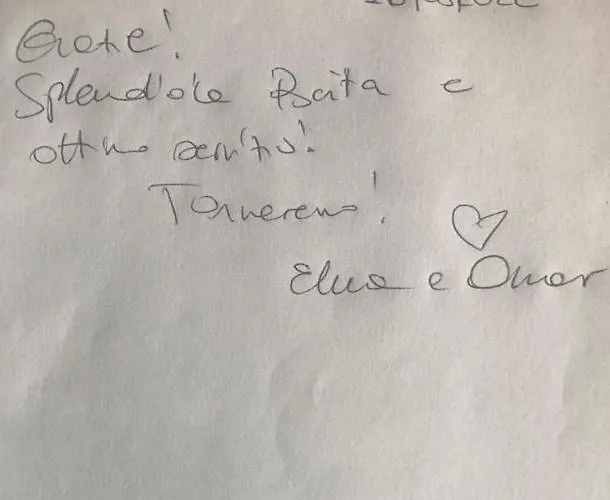 Grazie!
Splendida Baita e
ottimo servizio!
Torneremo!
e Omar